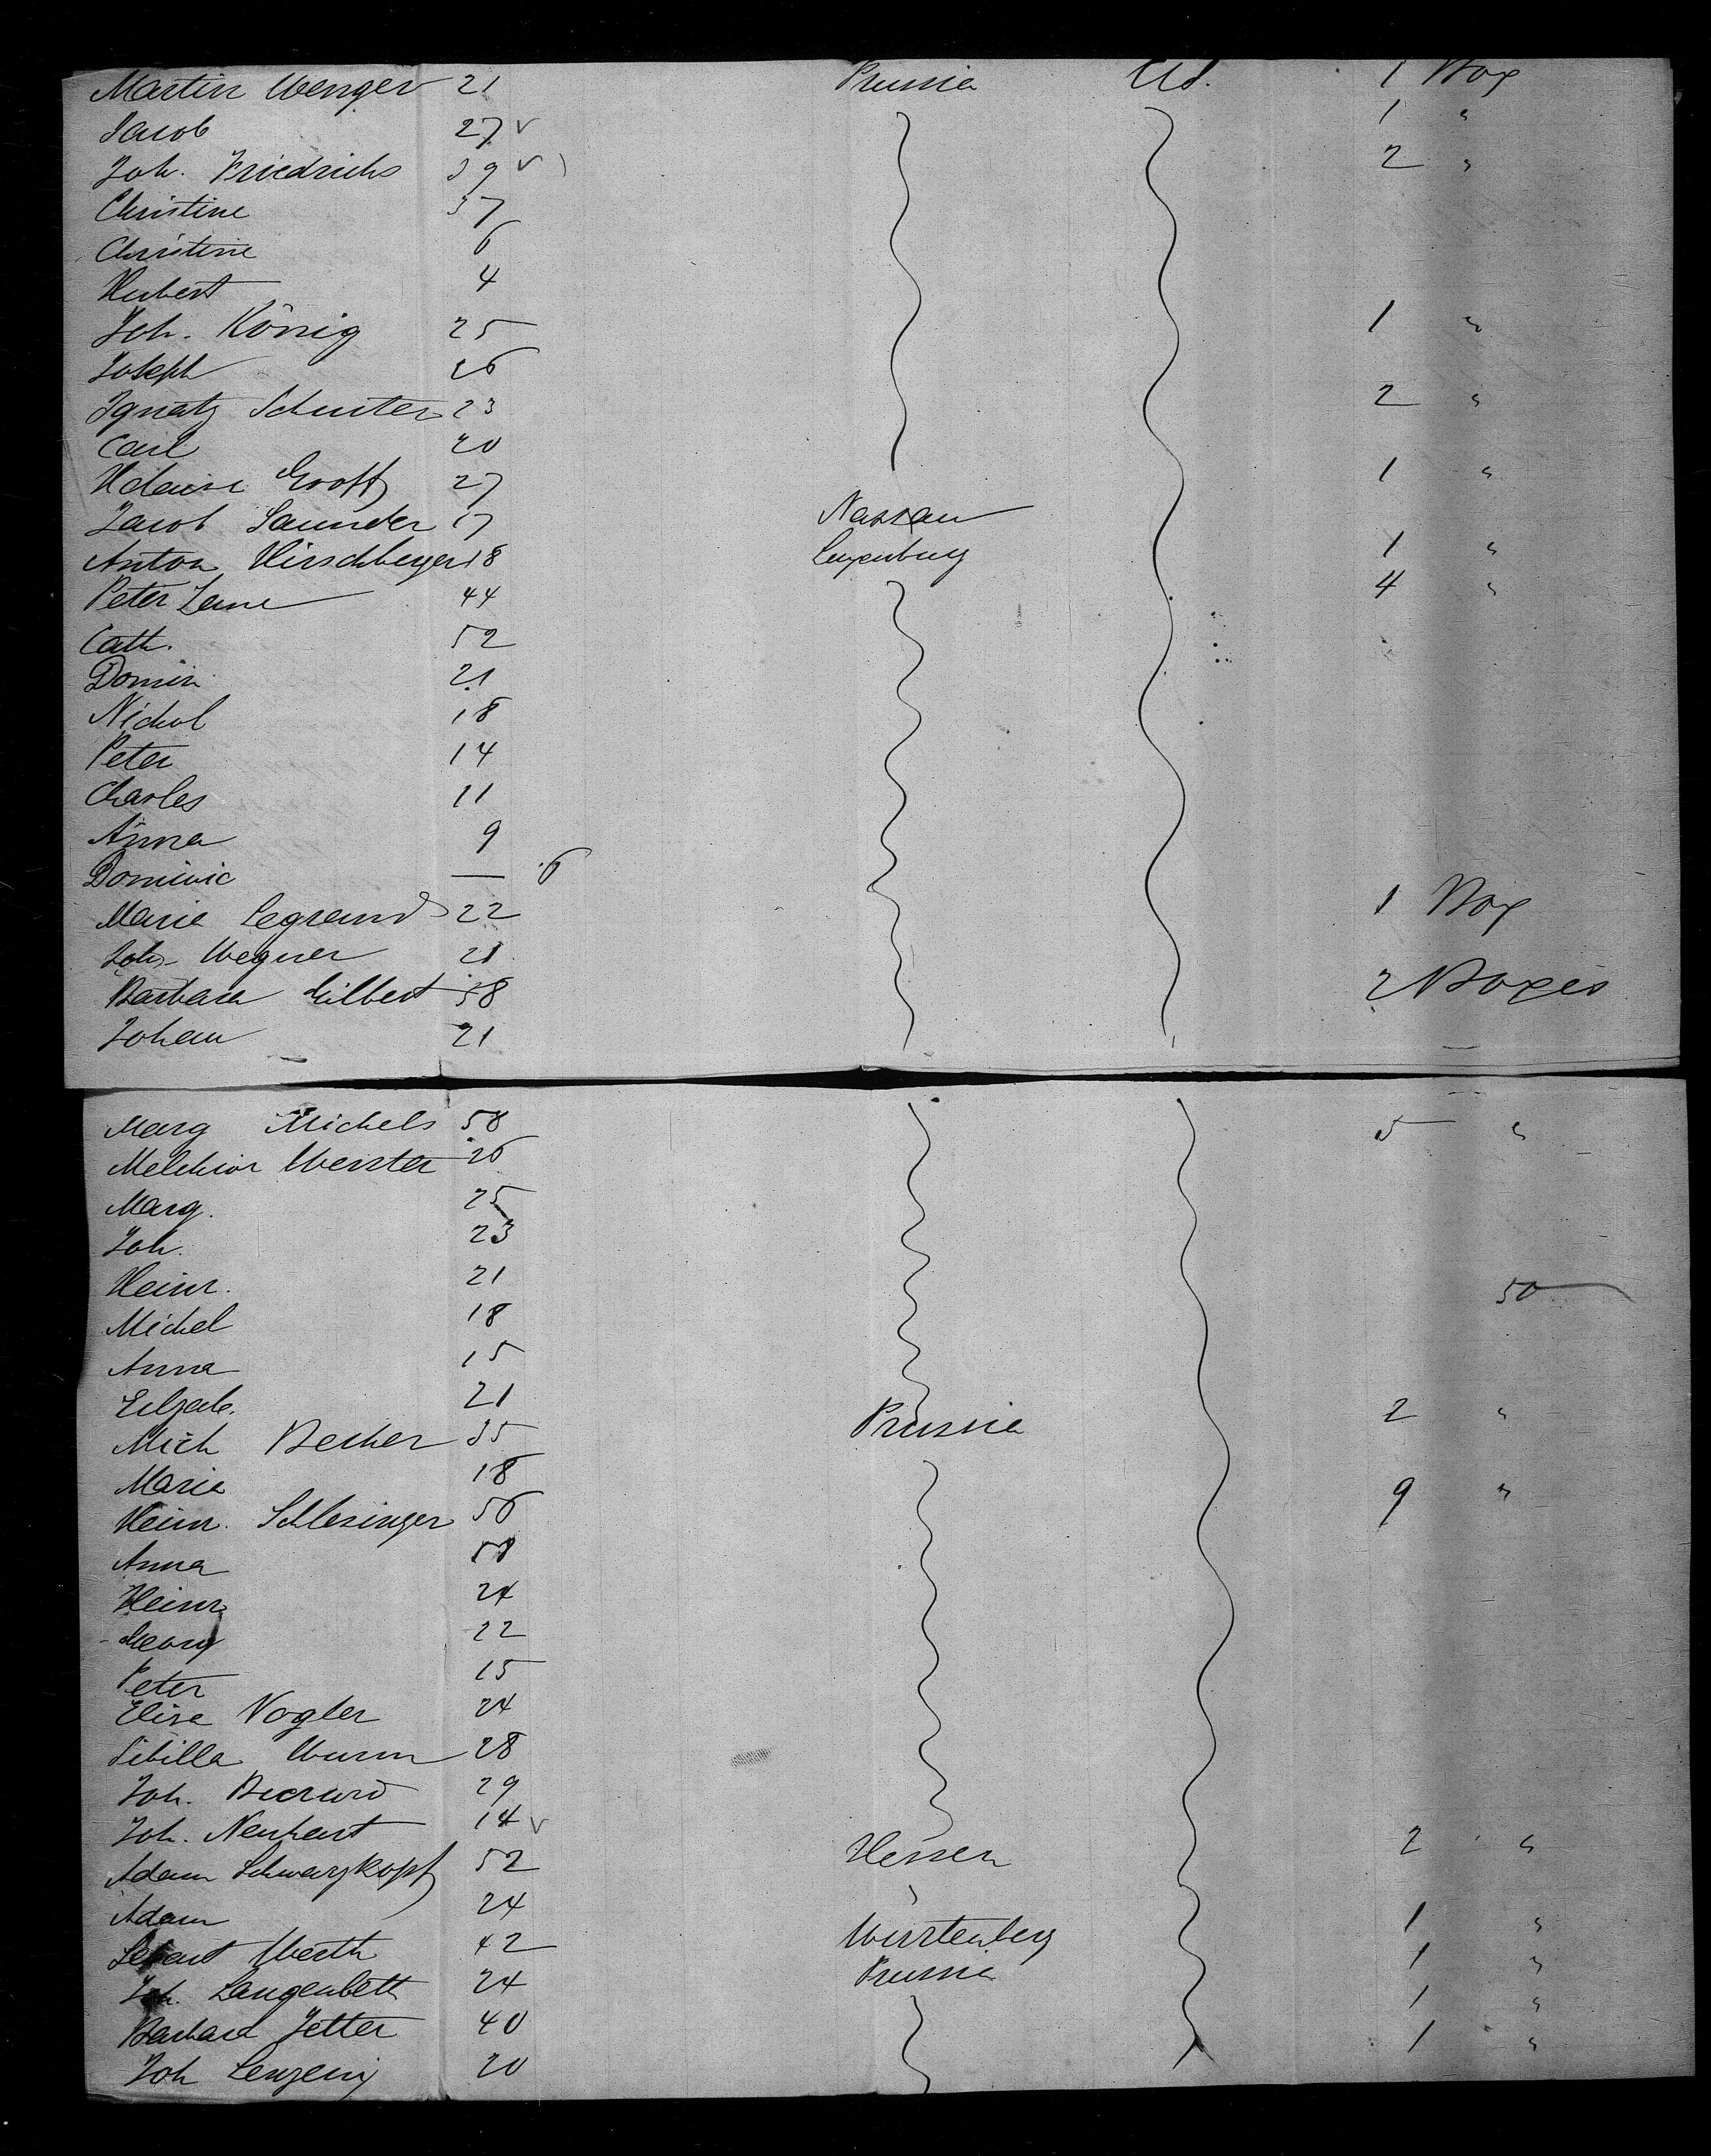 Martin Wenger 21 Prussia U.S. 1 Box
Jacob 27 1 "
Joh. Friedrichs 39 2 "
Christine 37
Christine 6
Hubert 4
Joh. König 25 1 "
Joseph 26
Ignatz Schuster 23 2 "
Carl 20
Groff 27 1 "
Jacob Saunder 17 Nassau
Anton Hirschberger 18 Luxenburg 1 "
Peter 44 4 "
Cath. 52
Domin 21
Nichol 18
Peter 14
Charles 11
Anna 9
Dominic — 6
Marie Legrand 22 1 Box
Joh. Wegner 21
Barbara Gilbert 58 2 Boxes
Johan 21
Marg Michels 58 5 "
Melchior 26
Marg. 25
Joh. 23
Heinr. 21 50
Michel 18
Anna 15
21 2 "
Mich Becker 35 Prussia
Marie 18 9 "
Heinr. Schlesinger 56
Anna
Heinr 24
Georg 22
Peter 15
Elise Vogler 24
Sibilla Wurm 28
Joh. 29
Joh. 14
Adam Schwarzkopf 52 Hessen 2 "
Adam 24
Werth 42 Würtenberg 1 "
Joh. Langenbett 24 Prussia 1 "
Barbara Jetter 40 1 "
Joh 20 1 "